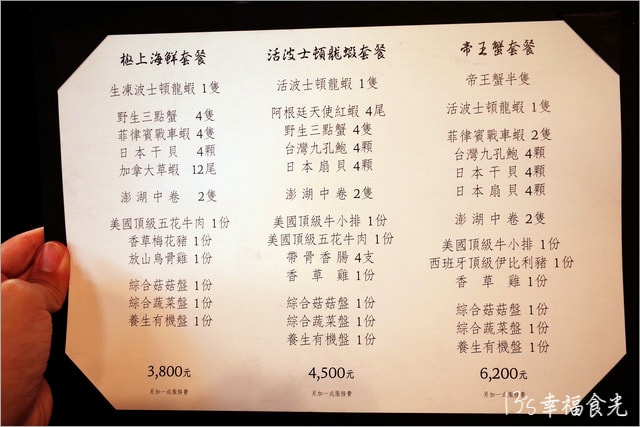 極上海鮮套餐
生凍波士頓龍蝦 1隻
野生三點蟹 4隻
菲律賓戰車蝦 4隻
日本干貝 4顆
加拿大草蝦 12尾
澎湖中卷 2隻
美國頂級五花牛肉 1份
香草梅花豬 1份
放山烏骨雞 1份
綜合菇菇盤 1份
綜合蔬菜盤 1份
養生有機盤 1份
3,800元
另加一成服務費
活波士頓龍蝦套餐
活波士頓龍蝦 1隻
阿根廷天使紅蝦 4尾
野生三點蟹 4隻
台灣九孔鮑 4顆
日本扇貝 4顆
澎湖中卷 2隻
美國頂級牛小排 1份
美國頂級五花牛肉 1份
帶骨香腸 4支
香草雞 1份
綜合菇菇盤 1份
綜合蔬菜盤 1份
養生有機盤 1份
4,500元
另加一成服務費
帝王蟹套餐
帝王蟹半隻
活波士頓龍蝦 1隻
菲律賓戰車蝦 2隻
台灣九孔鮑 4顆
日本干貝 4顆
日本扇貝 4顆
澎湖中卷 2隻
美國頂級牛小排 1份
西班牙頂級伊比利豬 1份
香草雞 1份
綜合菇菇盤 1份
綜合蔬菜盤 1份
養生有機盤 1份
6,200元
另加一成服務費
13's幸福食光